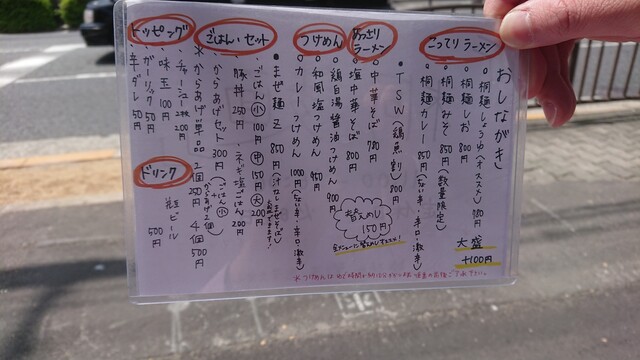 おしながき
こってりラーメン
桐麺しょうゆ(オススメ) 780円
桐麺しお 800円
桐麺みそ 850円 (数量限定)
桐麺カレー 850円 (ない辛・辛口・激辛)
大盛 +100円
あっさりラーメン
TSW (鶏魚割) 800円
中華そば 780円
塩中華そば 800円
替えめし 150円
つけめん
鶏白湯醤油つけめん 900円
和風塩つけめん 950円
カレーつけめん 1000円 (ない辛・辛口・激辛)
まぜ麺Z 850円 (汁なしまぜそば)
ごはん・セット
ごはん 小 100円 中 150円 大 200円
豚丼 250円
ネギ塩ごはん 200円
からあげセット 300円 (ごはん小 + からあげ2個)
からあげ単品 2個 250円 4個 500円
トッピング
チャーシュー2枚 200円
味玉 100円
ガーリック 50円
辛ダレ 50円
ドリンク
瓶ビール 500円